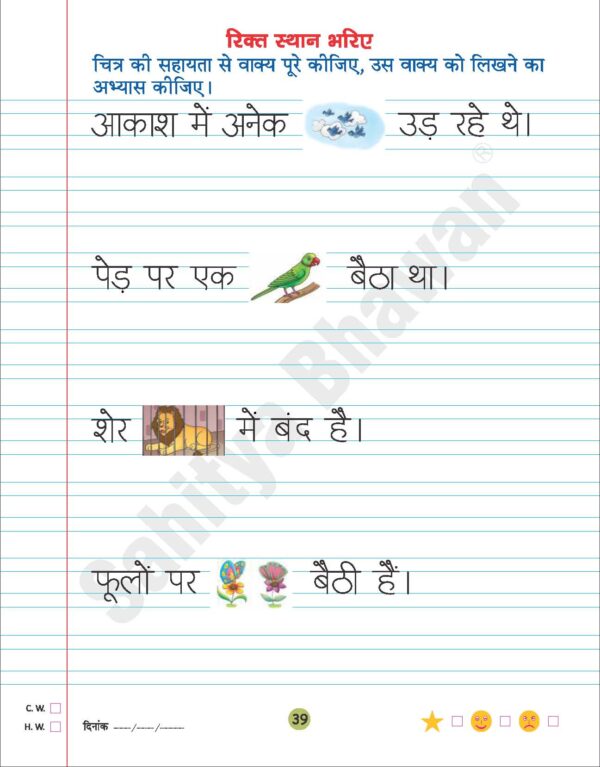 रिक्त स्थान भरिए
चित्र की सहायता से वाक्य पूरे कीजिए, उस वाक्य को लिखने का
अभ्यास कीजिए।
आकाश में अनेक उड़ रहे थे।
पेड़ पर एक बैठा था।
शेर में बंद है।
फूलों पर बैठी हैं।
Sahitya Bhawan®
C. W.
H. W.
दिनांक ----/----/------
39